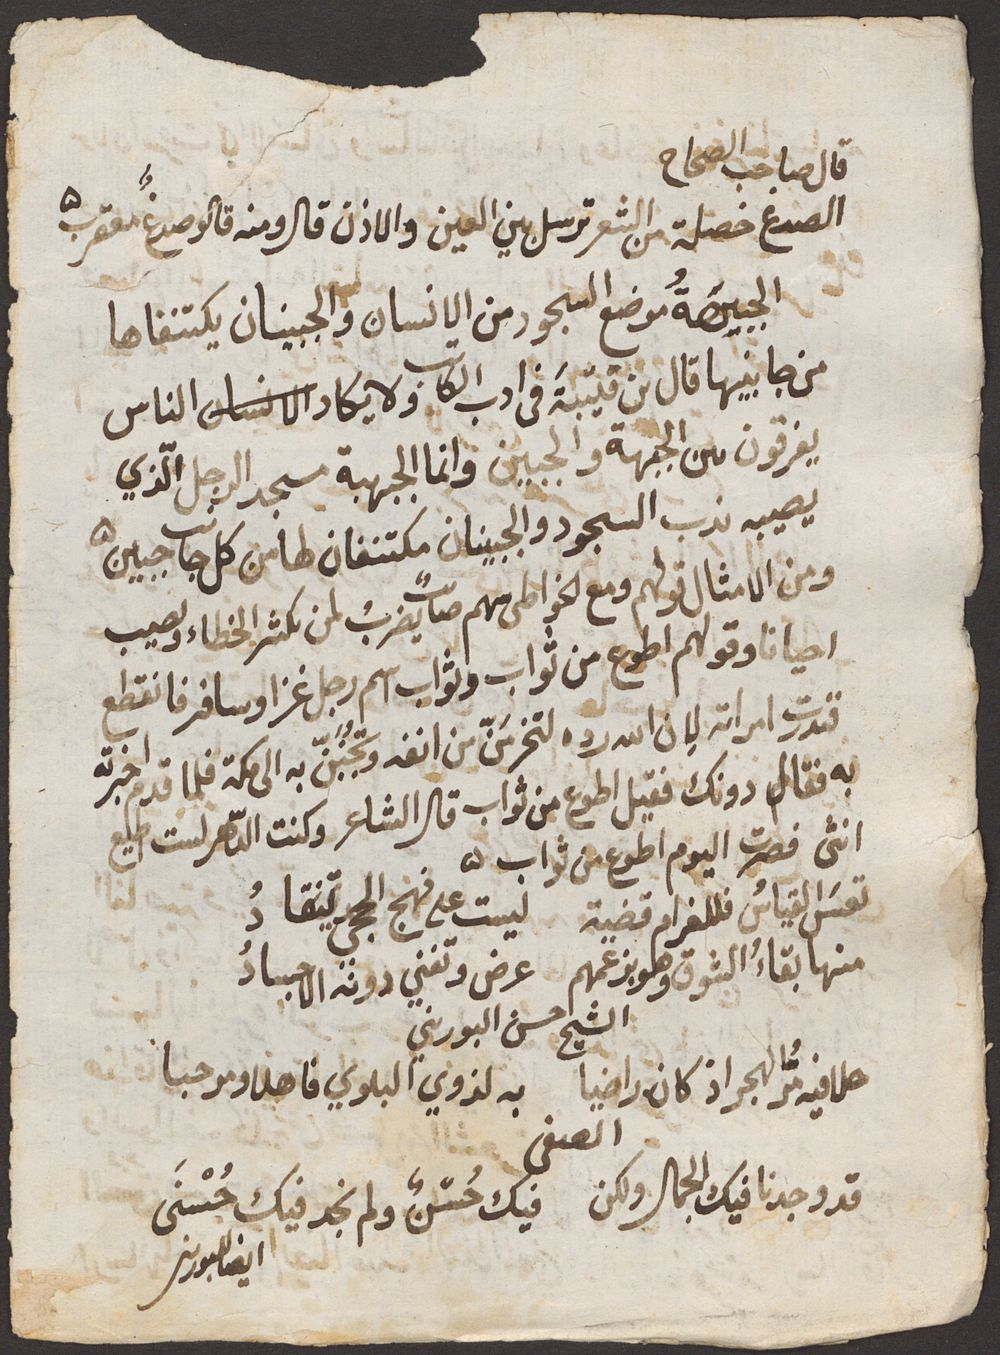 قال صاحب الصحاح
الصدغ خصلة من الشعر ترسل بين العين والاذن قال ومنه قالو صدغٌ معقرب ه
الجبهةُ موضع السجود من الانسان والجبينان يكتنفاها
من جانبيها قال بن قتيبةَ في ادب الكاتب ولا يكاد الانسان الناس
يفرقون بين الجبهة والجبين وانما الجبهة مسجد الرجل الّذي
يصيبه ندب السجود والجبينان مكتنفان لها من كل جانب جبين ه
ومن الامثال قولهم ومع الخواطى سهم صائبٌ يضربُ لمن يكثر الخطاء ويصيب
احيانا وقولهم اطوع من ثواب وثواب اسم رجل غزا وسافر فانقطع
فنذرت امراته لان الله رده لتخرمَنّ من انفه وتجُنُبَنّ به الى مكة فلما قدم اخبرته
به فقال دونك فقيل اطوع من ثواب قال الشاعر وكنت الدّهر لست اطيع
انثى فصرت اليوم اطوع من ثواب ه
تعسَ القياسُ فللغرام قضية ليست على نهج الحجى تنقادُ
منها بقاءُ الشوق وهو بزعمهم عرض وتفنى دونه الاجسادُ
الشيخ حسن البوريني
حلا فيه مُرُّ الهجر اذ كان راضيا به لذوي البلوي فاهلا ومرحبا
الصفى
قد وجدنا فيك الجمال ولكن فيك حُسْنٌ ولم نجد فيك حُسْنَى
ايضا للبوريني